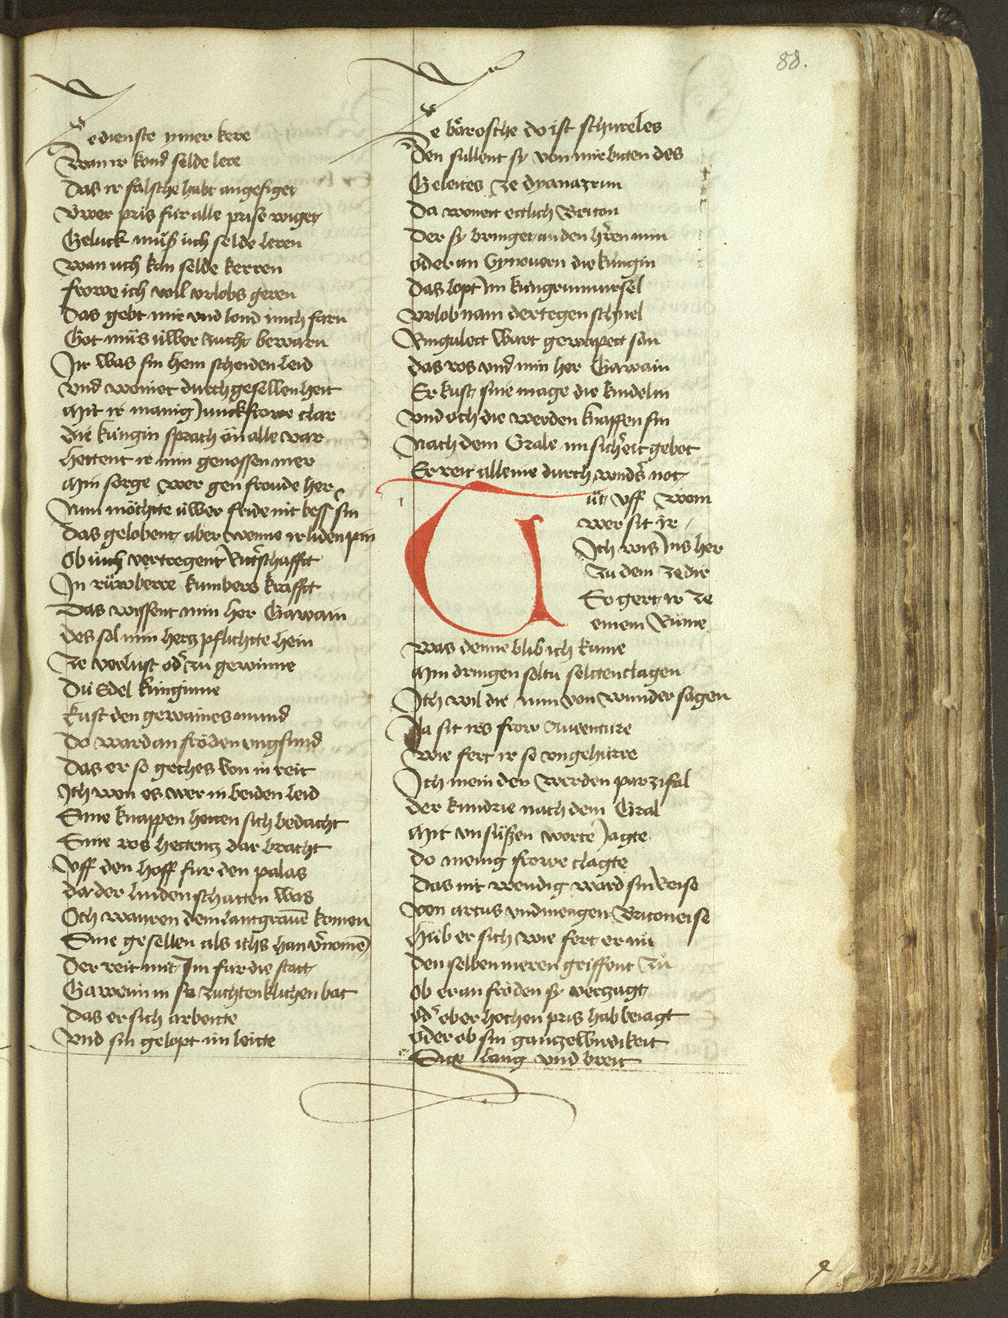 88.
Ze dienste ymer kere
Wan ir kond selde lere
Das ir falsche habt angesiget
Vwer pris für alle prise wiget
Gelück müß üch selde leren
wan üch kan selde kerren
frowe ich wil vrlobs geren
Das gebt mir vnd lond mich farn
Got müs üwer zucht bewarn
Ir was sin hein scheiden leid
vnd weinet durch gesellenheit
Mit ir manig Junckfrowe clar
die küngin sprach än alle var
hettent ir min genossen mer
Min sorge wer gen froude her
Nun möchte üwer fride nit besser sin
Das gelobent aber wenne ir liden pin
Ob üch vertregent Ritterschafft
In rüwbere kumbers krafft
Das wissent min her Gawain
des sol min hertz pflichtte hein
Ze verlust oder zu gewinne
Dü Edel künginne
kust den gewaines mund
Do ward an fröden vngsund
Das er so geches von in reit
Ich wen es wer in beiden leid
Sine knappen hetten sich bedacht
Sine ros hettentz dar bracht
Vff den hoff für den palas
da der linden schatten was
Och waren dem lantgrauen komen
Sine gesellen als ichs han vernomen
Der reit mit Im für die statt
Gawein in fin zuchtenklichen bat
Das er sich arbeitte
vnd sin gelopt im leitte
Ze bärosche do ist schureles
Den sullent sy von mir biten des
Geleites ze dyanazrun
Da wonett ettlich Briton
Der sy bringet an den herren min
oder an Gynouern die küngin
Das lopt Im küngrimmursel
vrlob nam der tegen schnel
Ringulett wart gewapett sän
das ros vnd min her Gawain
Er kust sine mage die kindelin
vnd och die werden knappen sin
Nach dem Grale im sicherheit gebot
Er reit alleine durch wunders not
Tüt vff wem
wer sit ir
Ich wis Ins her
zu dem ze dir
So gert ir ze
einem Rume
was denne blib ich kume
Min dringen soltu seltten clagen
Ich wil dir nun von wunder sagen
Ja sit irs frow Auventure
wie fert ir so vngehürre
Ich mein den werden parzifal
der kundrie nach dem Gral
Mit vnsüssen worte Jagte
do menig frowe clagte
Das nit wendig ward sin Reise
von artus vnd mengen Britoneise
Hüb er sich wie fert er nü
den selben meren griffent zü
Ob er an fröden sy verzagt
oder ober hochen pris hab beiagt
oder ob sin gantze wirdikeit
Sige lang vnd breit